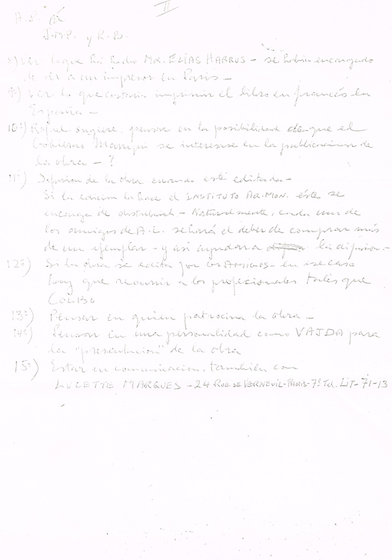 II
S.M.P. y R.L.
8º) Ver lo que Sir Mr. ELIAS HARRUS - se había encargado
de ver a un impresor en París -
9º) Ver lo que costaría imprimir el libro en francés en
España -
10º) Rafael sugiere pensar en la posibilidad de que el
se interese en la publicación de
la obra - ?
11º) Difusión de la obra cuando esté editada -
Si la edición la hace el INSTITUTO AR. MON. éste se
encarga de distribuirla - Naturalmente, cada uno de
los amigos de A.L. se hará el deber de comprar más
de un ejemplar - y así ayudaría la difusión -
12º) Si la obra se edita por los AMIGOS - en ese caso
hay que recurrir a los profesionales tales que
13º) Pensar en quien patrocina la obra -
14º) Pensar en una personalidad como VAJDA para
la "presentación" de la obra
15º) Estar en comunicación, también con
LUCETTE MARQUES - 24 Rue de VERNEUIL - PARIS - 7º Tel. LIT - 71-13